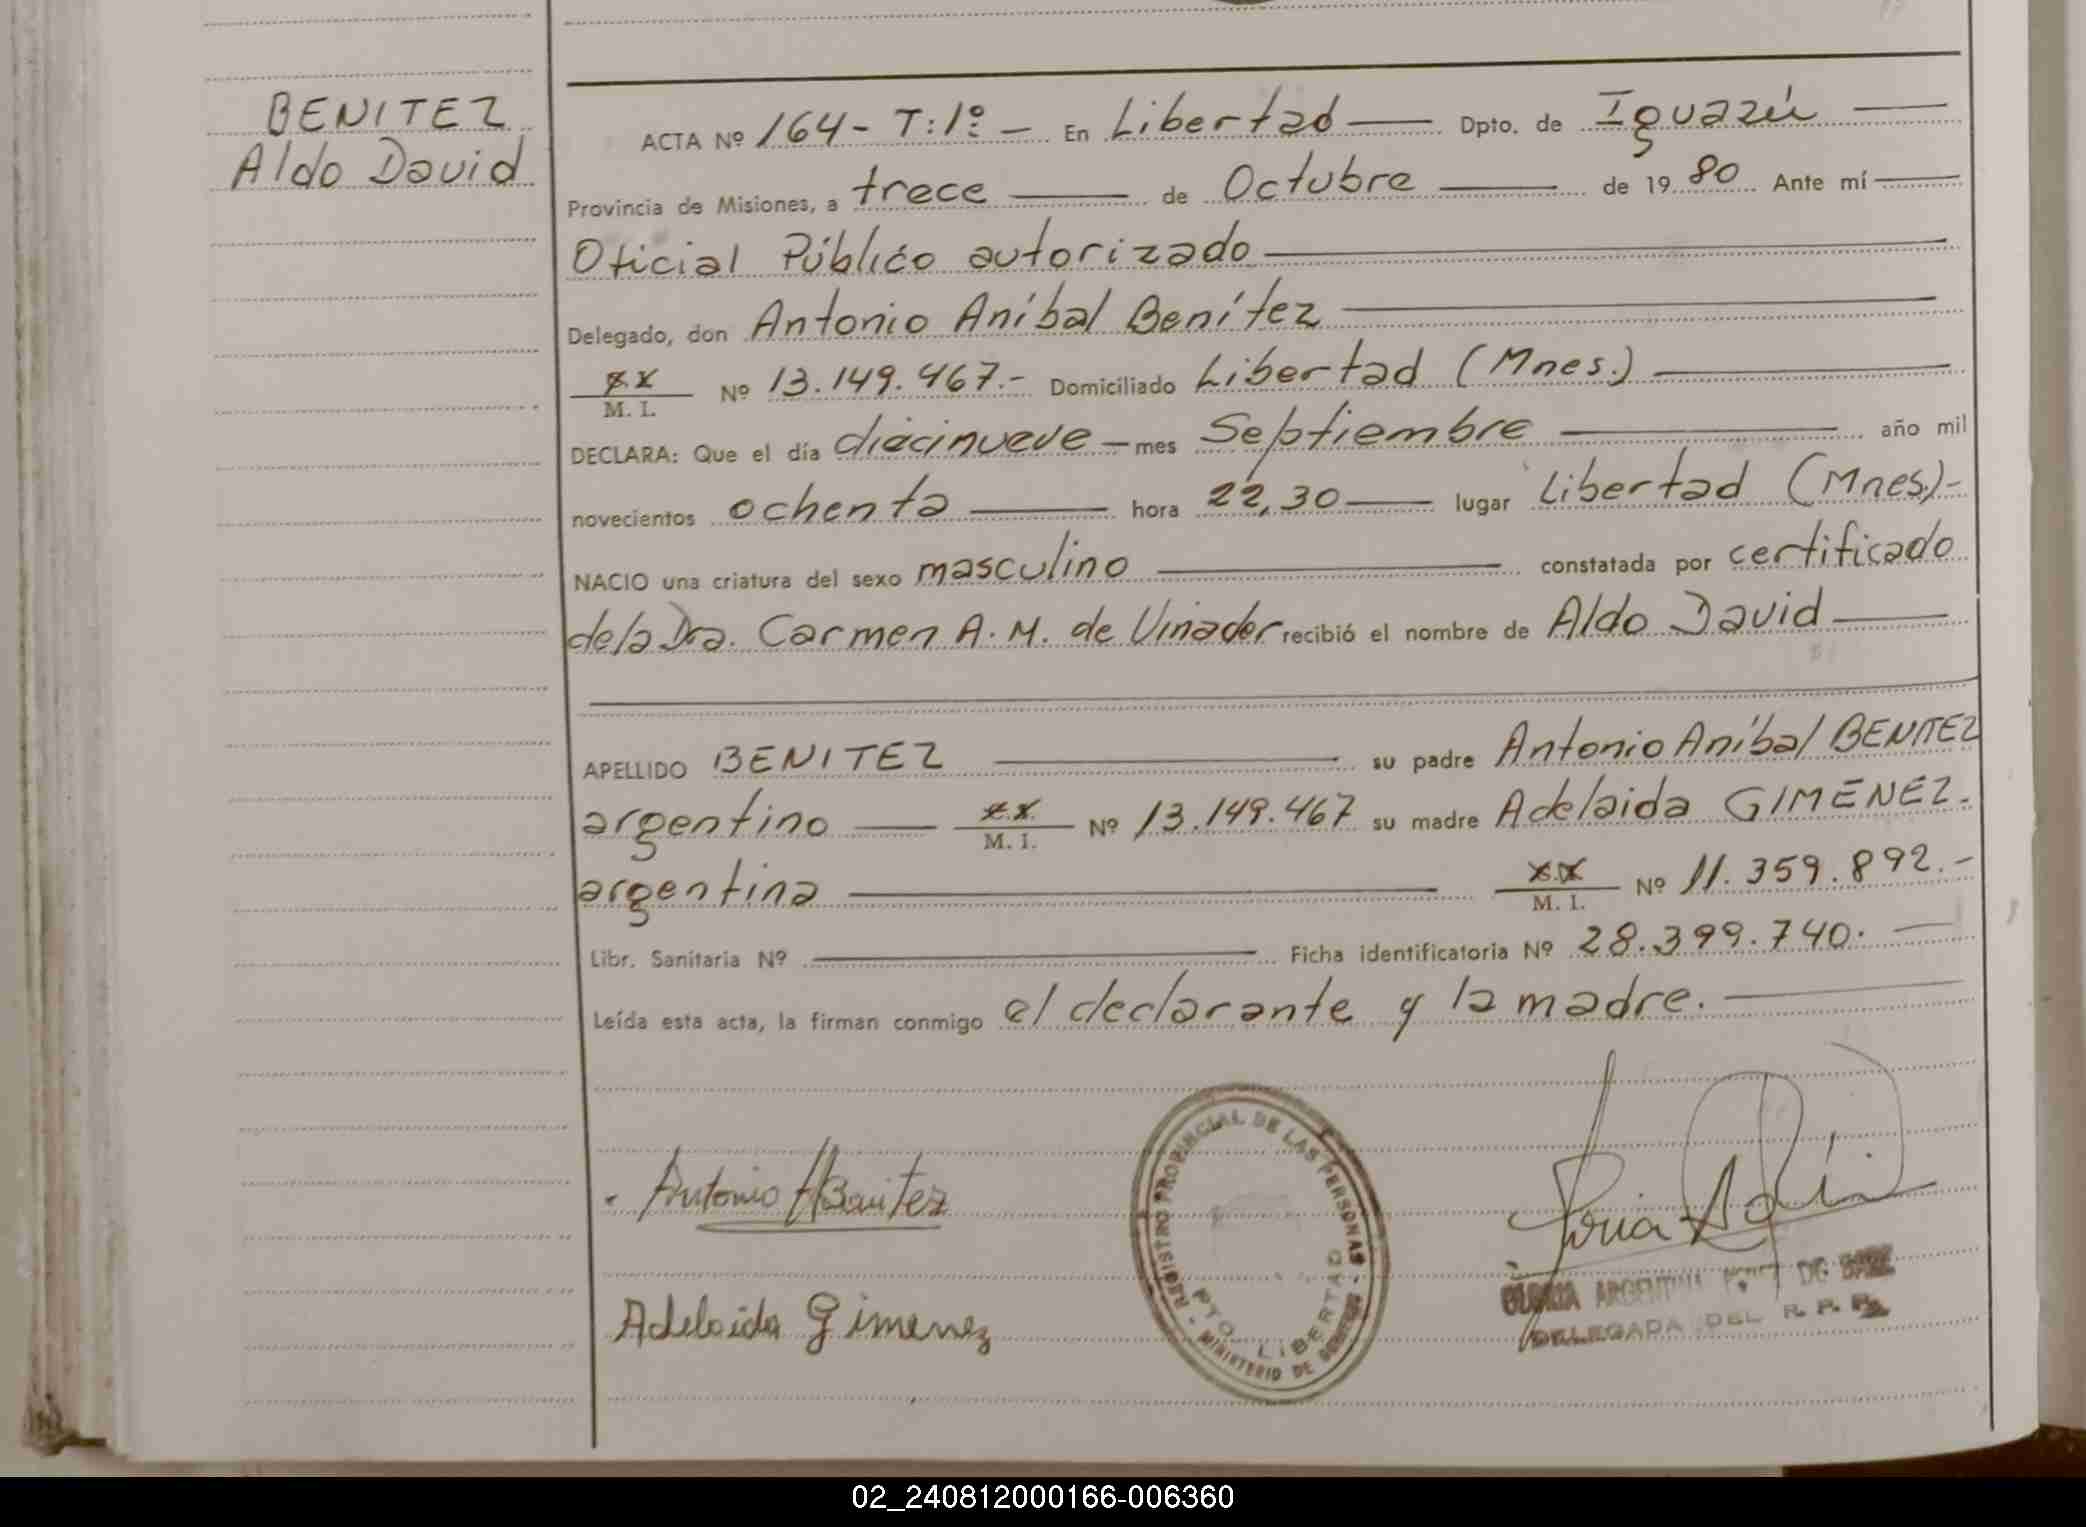 BENITEZ
Aldo David
ACTA Nº 164- T:1º - En Libertad Dpto. de Iguazú
Provincia de Misiones, a trece de Octubre de 1980 Ante mí
Oficial Público autorizado
Delegado, don Antonio Aníbal Benítez
M. I. Nº 13.149.467.- Domiciliado Libertad (Mnes.)
DECLARA: Que el día diecinueve - mes Septiembre año mil
novecientos ochenta hora 22,30 lugar Libertad (Mnes.)-
NACIO una criatura del sexo masculino constatada por certificado
de la Dra. Carmen A. M. de Vinader recibió el nombre de Aldo David
APELLIDO BENITEZ su padre Antonio Aníbal BENITEZ
argentino M. I. Nº 13.149.467 su madre Adelaida GIMENEZ.
argentina M. I. Nº 11.359.892.-
Libr. Sanitaria Nº Ficha identificatoria Nº 28.399.740.
Leída esta acta, la firman conmigo el declarante y la madre.
Antonio A Benitez
Adelaida Gimenez
REGISTRO PROVINCIAL DE LAS PERSONAS - MINISTERIO DE GOBIERNO -
PTO. LIBERTAD
GLORIA ARGENTINA DE
DELEGADA DEL R. P. P.
02_240812000166-006360